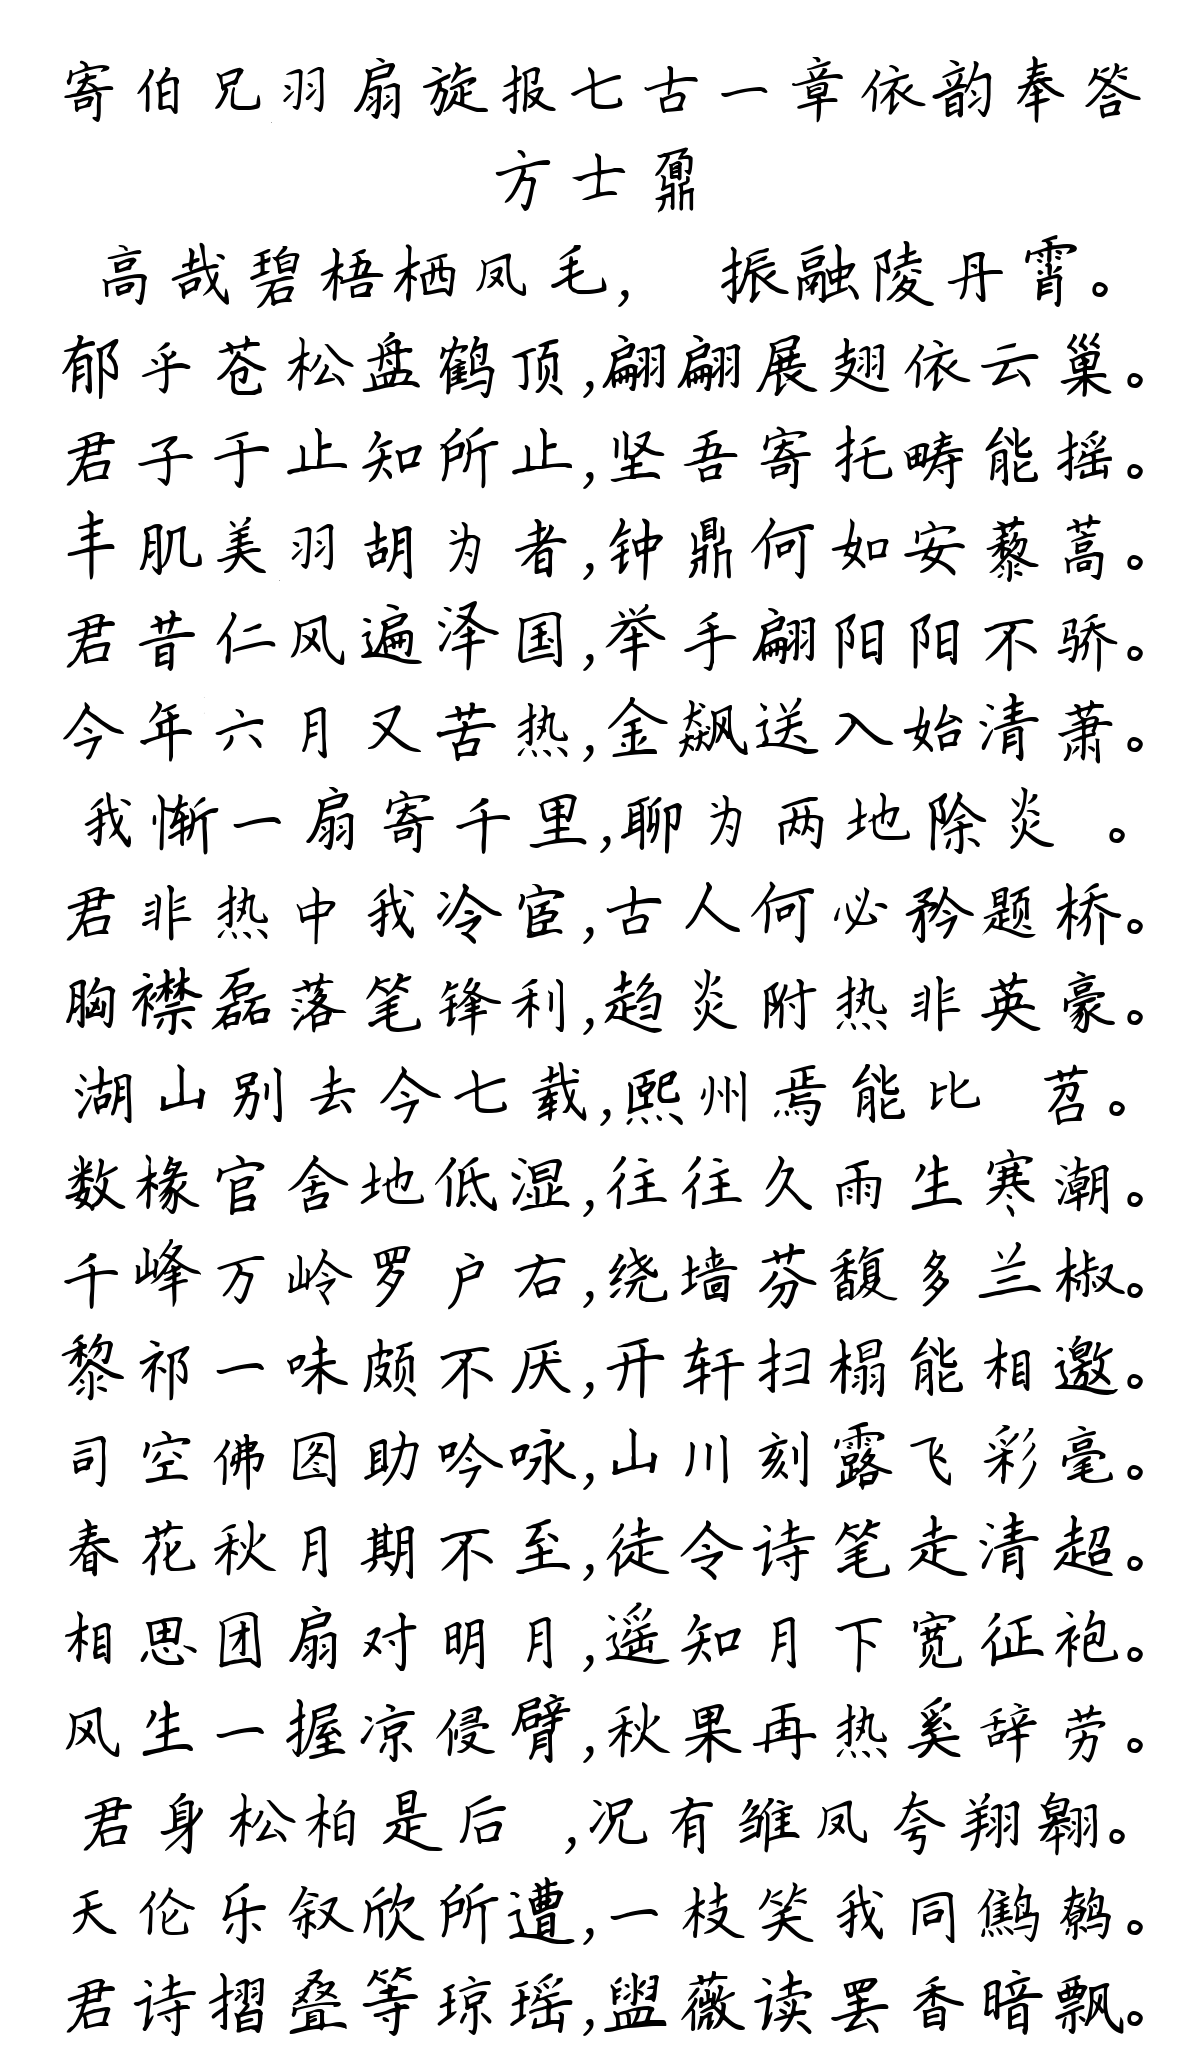 寄伯兄羽扇旋报七古一章依韵奉答
方士鼐
高哉碧梧栖凤毛, 振融陵丹霄。
郁乎苍松盘鹤顶,翩翩展翅依云巢。
君子于止知所止,坚吾寄托畴能摇。
丰肌美羽胡为者,钟鼎何如安藜蒿。
君昔仁风遍泽国,举手翩阳阳不骄。
今年六月又苦热,金飙送入始清萧。
我惭一扇寄千里,聊为两地除炎 。
君非热中我冷宦,古人何必矜题桥。
胸襟磊落笔锋利,趋炎附热非英豪。
湖山别去今七载,熙州焉能比 苕。
数椽官舍地低湿,往往久雨生寒潮。
千峰万岭罗户右,绕墙芬馥多兰椒。
黎祁一味颇不厌,开轩扫榻能相邀。
司空佛图助吟咏,山川刻露飞彩毫。
春花秋月期不至,徒令诗笔走清超。
相思团扇对明月,遥知月下宽征袍。
风生一握凉侵臂,秋果再热奚辞劳。
君身松柏是后 ,况有雏凤夸翔翱。
天伦乐叙欣所遭,一枝笑我同鹪鹩。
君诗摺叠等琼瑶,盥薇读罢香暗飘。